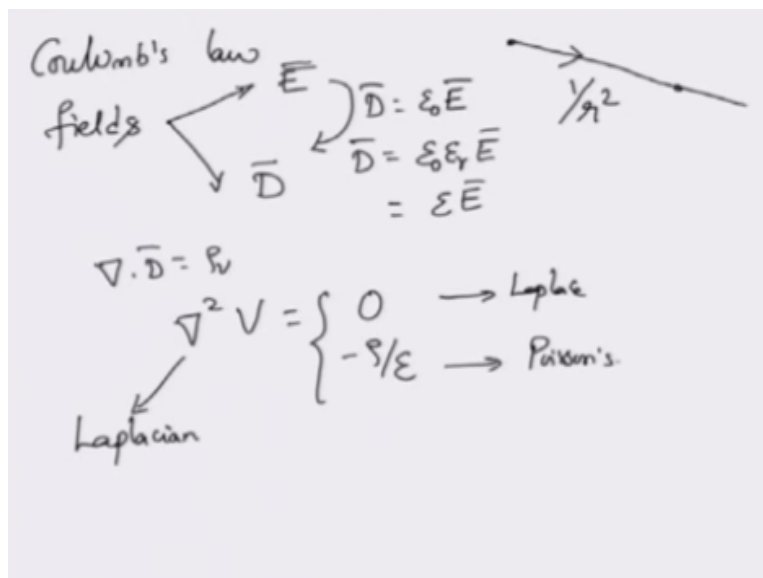 Coulomb's law
fields
E̅
D̅ = ε₀E̅
D̅ = ε₀εᵣE̅
= εE̅
D̅
1/r²
∇.D̅ = ρᵥ
∇²V = { 0 → Laplace
-ρ/ε → Poisson's.
Laplacian